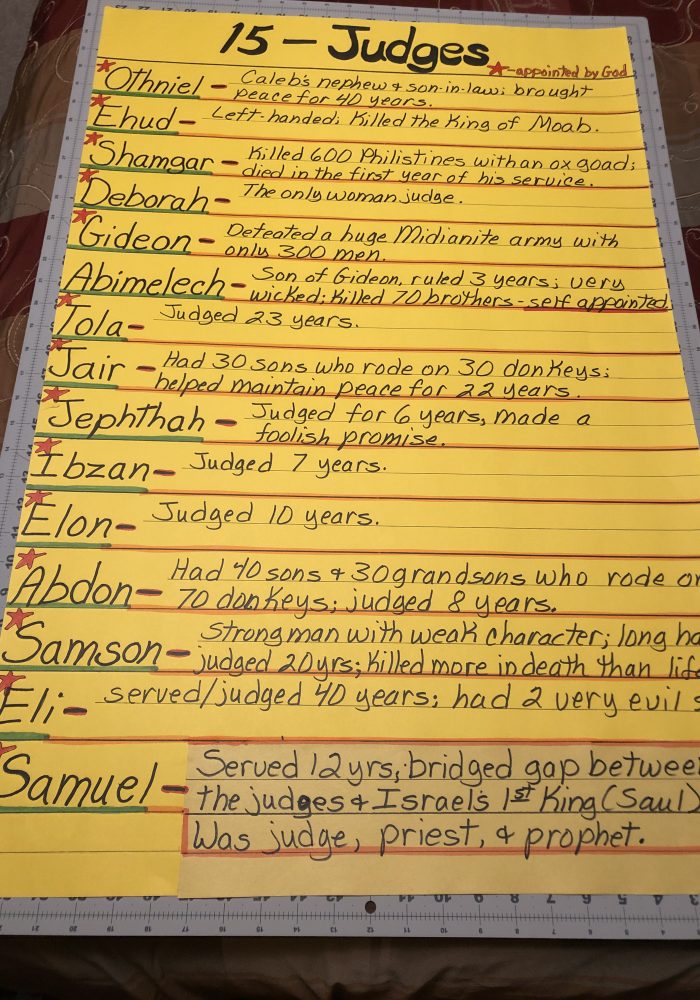 15 - Judges
★-appointed by God
Othniel - Caleb's nephew & son-in-law; brought
peace for 40 years.
Ehud - Left-handed; Killed the King of Moab.
Shamgar - Killed 600 Philistines with an ox goad;
died in the first year of his service.
Deborah - The only woman judge.
Gideon - Defeated a huge Midianite army with
only 300 men.
Abimelech - Son of Gideon, ruled 3 years; very
wicked; Killed 70 brothers - self appointed
Tola - Judged 23 years.
Jair - Had 30 sons who rode on 30 donkeys;
helped maintain peace for 22 years.
Jephthah - Judged for 6 years, made a
foolish promise.
Ibzan - Judged 7 years.
Elon - Judged 10 years.
Abdon - Had 40 sons & 30 grandsons who rode on
70 donkeys; judged 8 years.
Samson - Strongman with weak character; long ha
judged 20 yrs; Killed more in death than life
Eli - served/judged 40 years; had 2 very evil s
Samuel - Served 12 yrs, bridged gap between
the judges & Israel's 1st King (Saul)
Was judge, priest, & prophet.